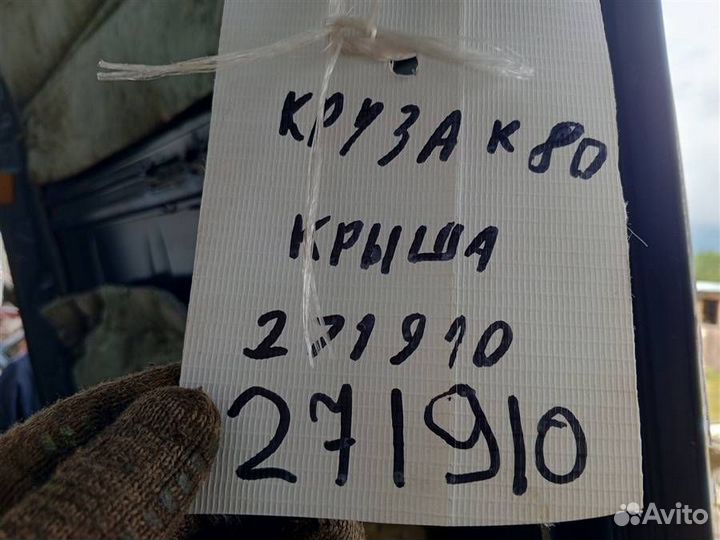 КРУЗАК 80
КРЫША
271910
271910
Avito